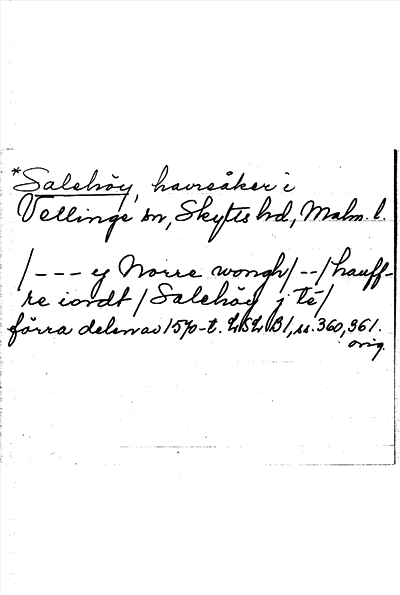 *Salehöy, havreåker i
Vellinge sn, Skytts hd, Malm. l.
/--- ey Norre wongh/--/hauff-
re iordt/Salehöy j té/
förra delen av 1570-t. LSLB1, ss. 360, 361.
orig.